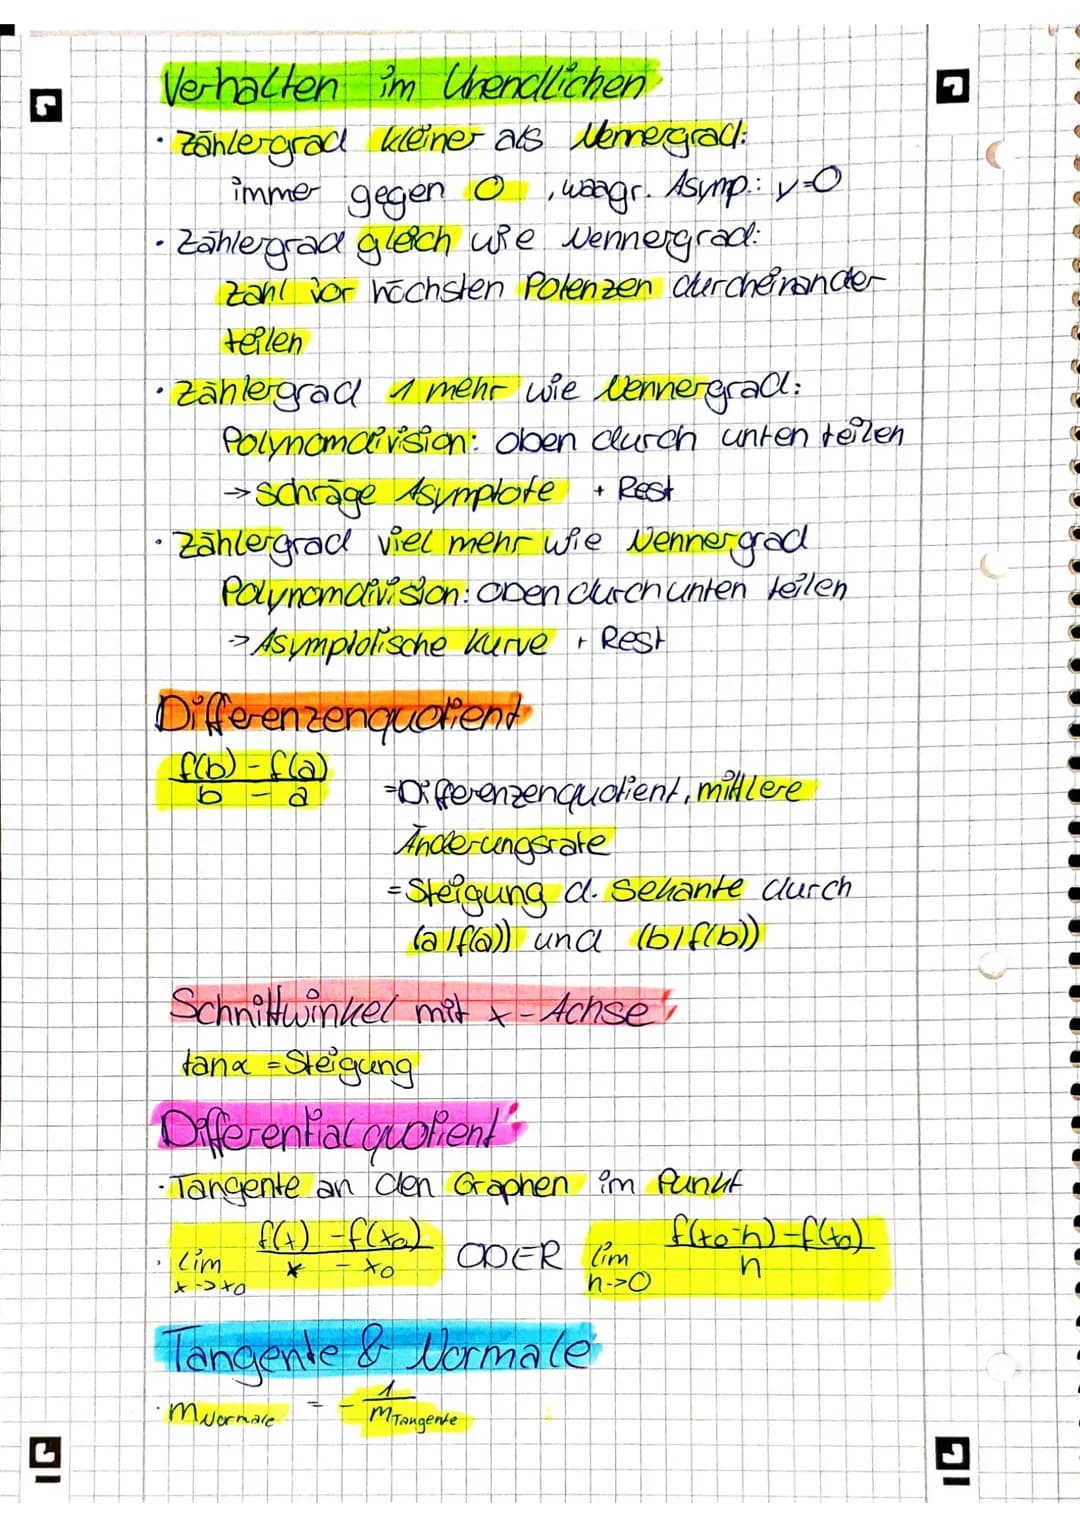 Verhalten im Unendlichen
· Zählergrad kleiner als Nennergrad:
immer gegen 0, waagr. Asymp.: y=0
· Zählergrad gleich wie Nennergrad:
Zahl vor höchsten Potenzen durcheinander
teilen
· Zählergrad 1 mehr wie Nennergrad:
Polynomdivision: oben durch unten teilen
→ Schräge Asymptote + Rest
· Zählergrad viel mehr wie Nennergrad
Polynomdivision: oben durch unten teilen
→ Asymptotische Kurve + Rest
Differenzenquotient
f(b) - f(a)
b - a
= Differenzenquotient, mittlere
Änderungsrate
= Steigung d. Sekante durch
(a/f(a)) und (b/f(b))
Schnittwinkel mit x-Achse
tanα = Steigung
Differentialquotient
· Tangente an den Graphen im Punkt
f(x) - f(x0) f(x0-h) - f(x0)
· lim x - x0 ODER lim h
x->x0 h->0
Tangente & Normale
· mNormale = - 1
mTangente